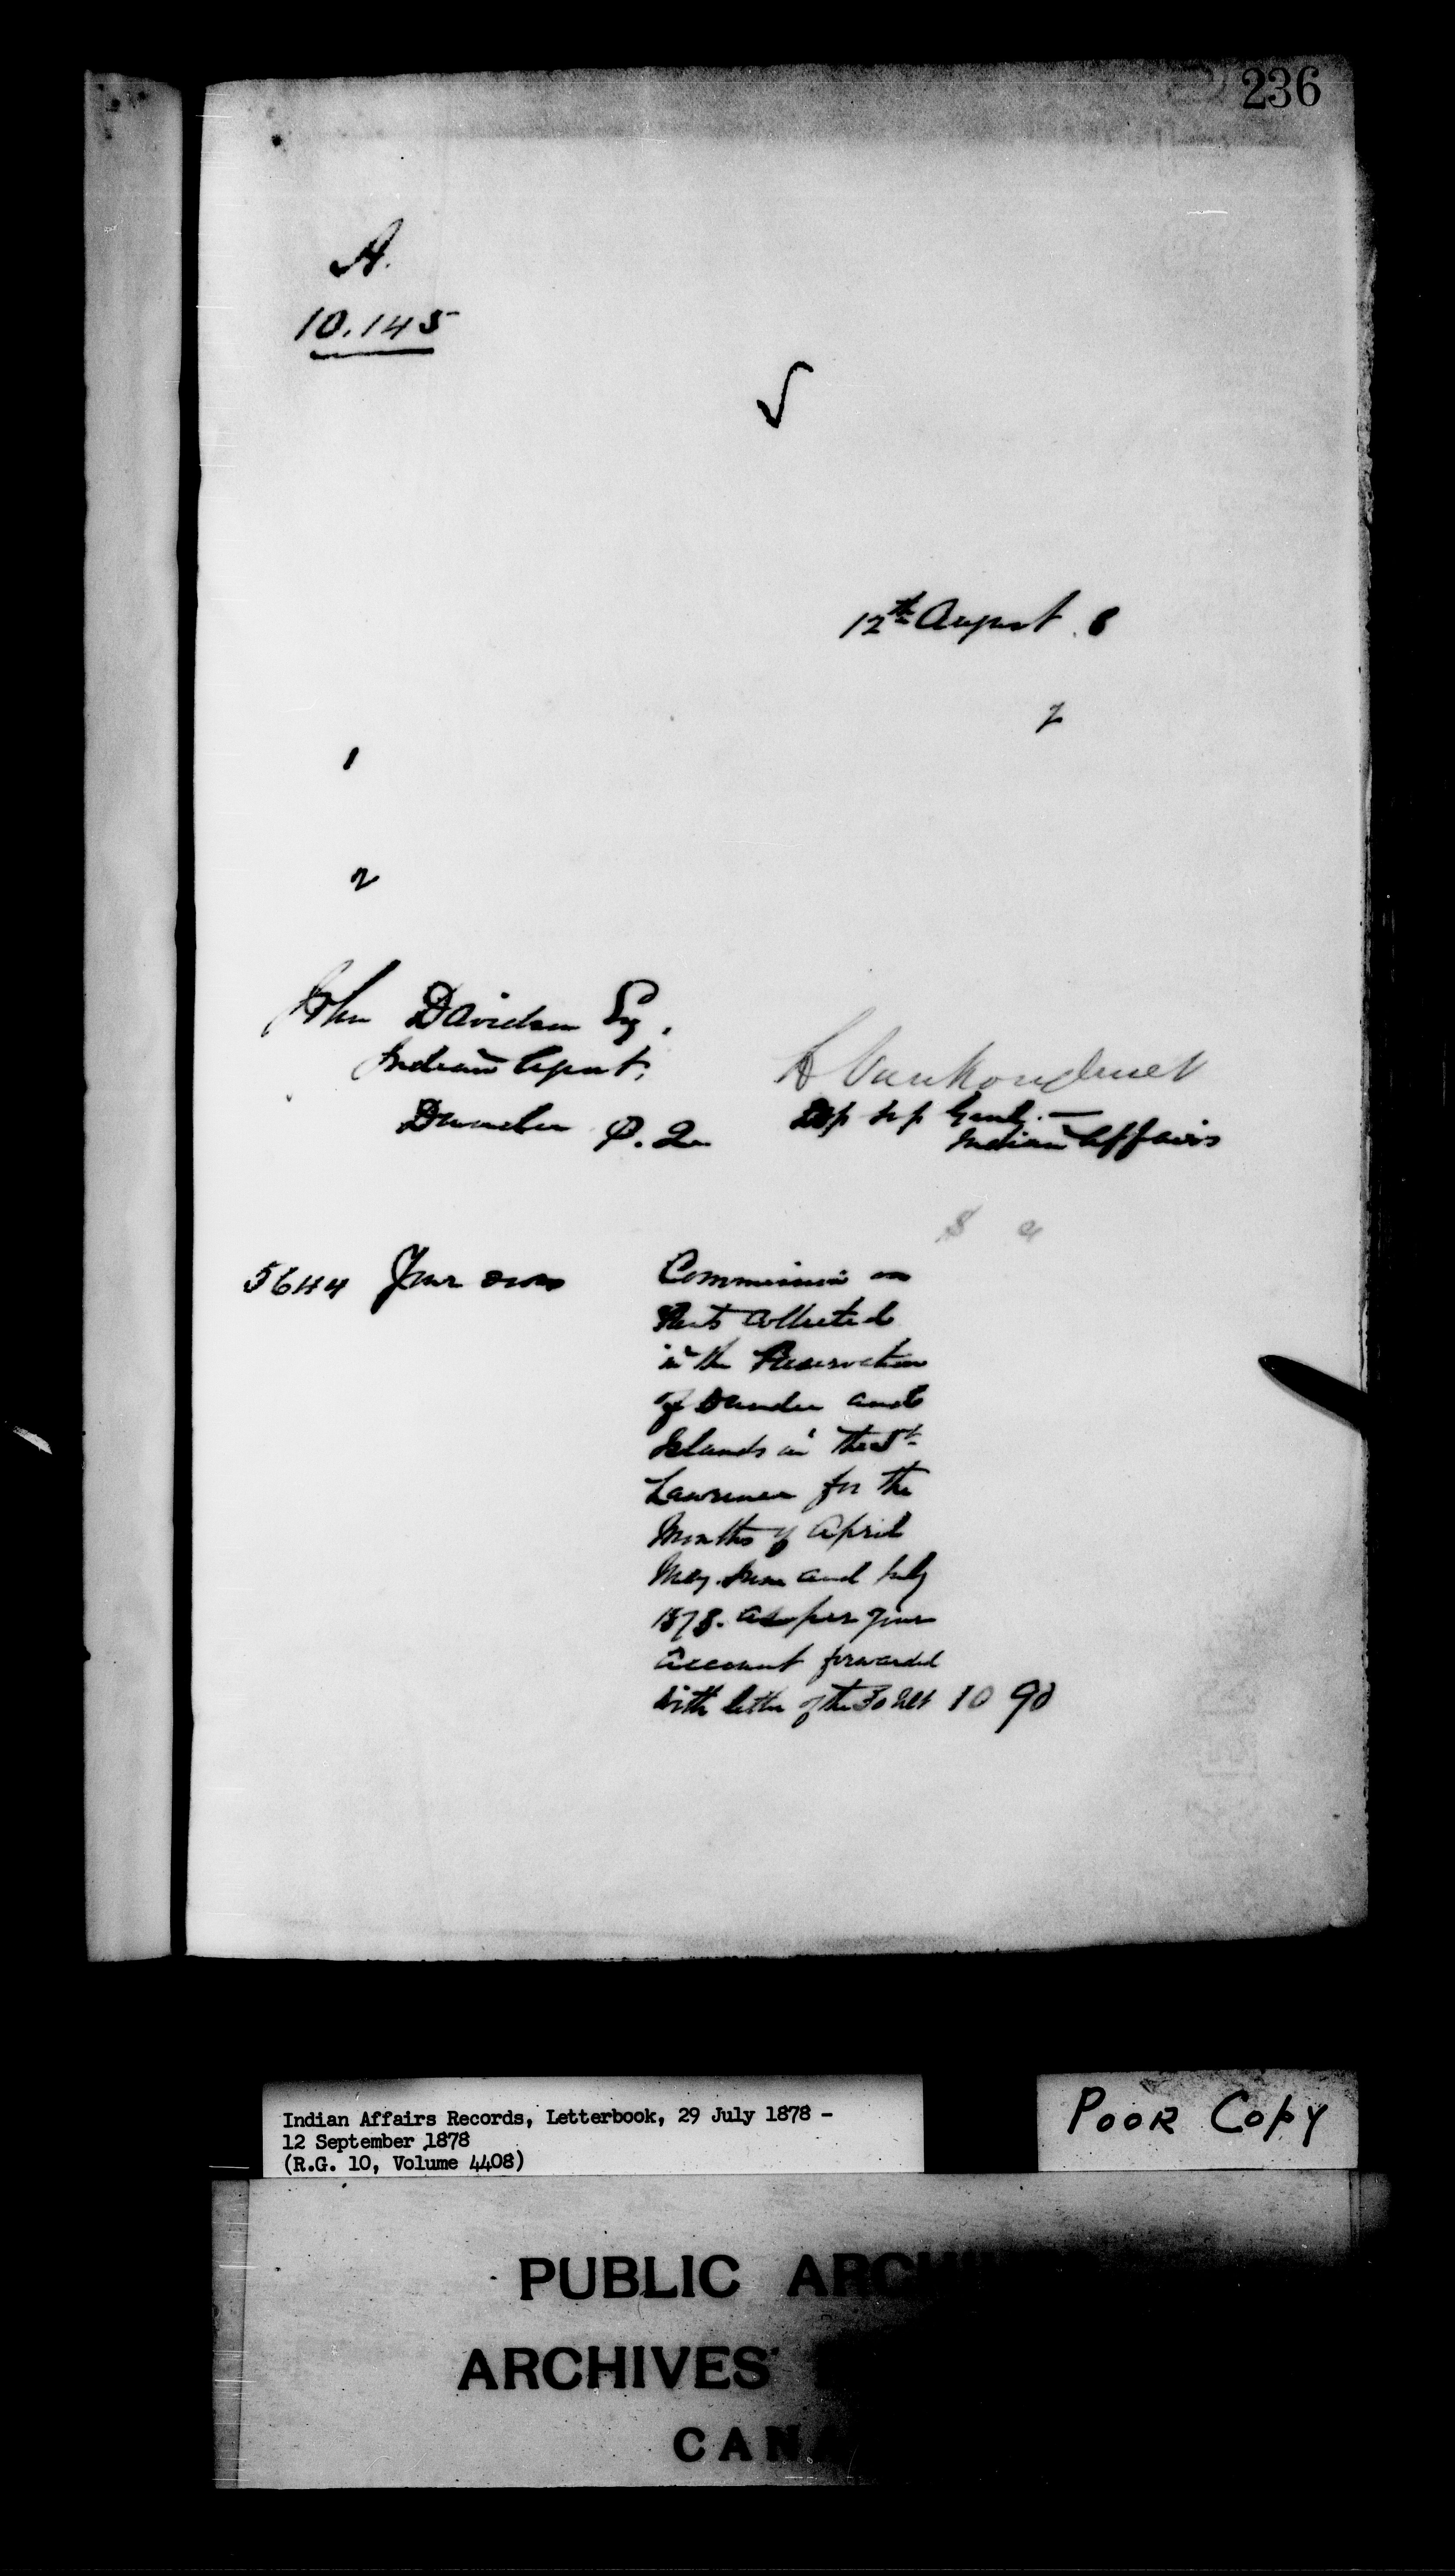 236
A.
10.145
√
12th August. 8
2
1
2
John Davidson Esq.
Indian Agent,
Dundee P. Q.
L Vankoughnet
Dep Sup Genl. —
Indian Affairs
$ c
5644 Your own Commission on
Rents collected
in the Reservation
of Dundee and
Islands in the St.
Lawrence for the
Months of April
May. June and July
1878. as per your
account forwarded
with letter of the 30 Ult 10 90
Indian Affairs Records, Letterbook, 29 July 1878 -
12 September 1878
(R.G. 10, Volume 4408)
POOR COPY
PUBLIC ARCHI
ARCHIVES
CANA